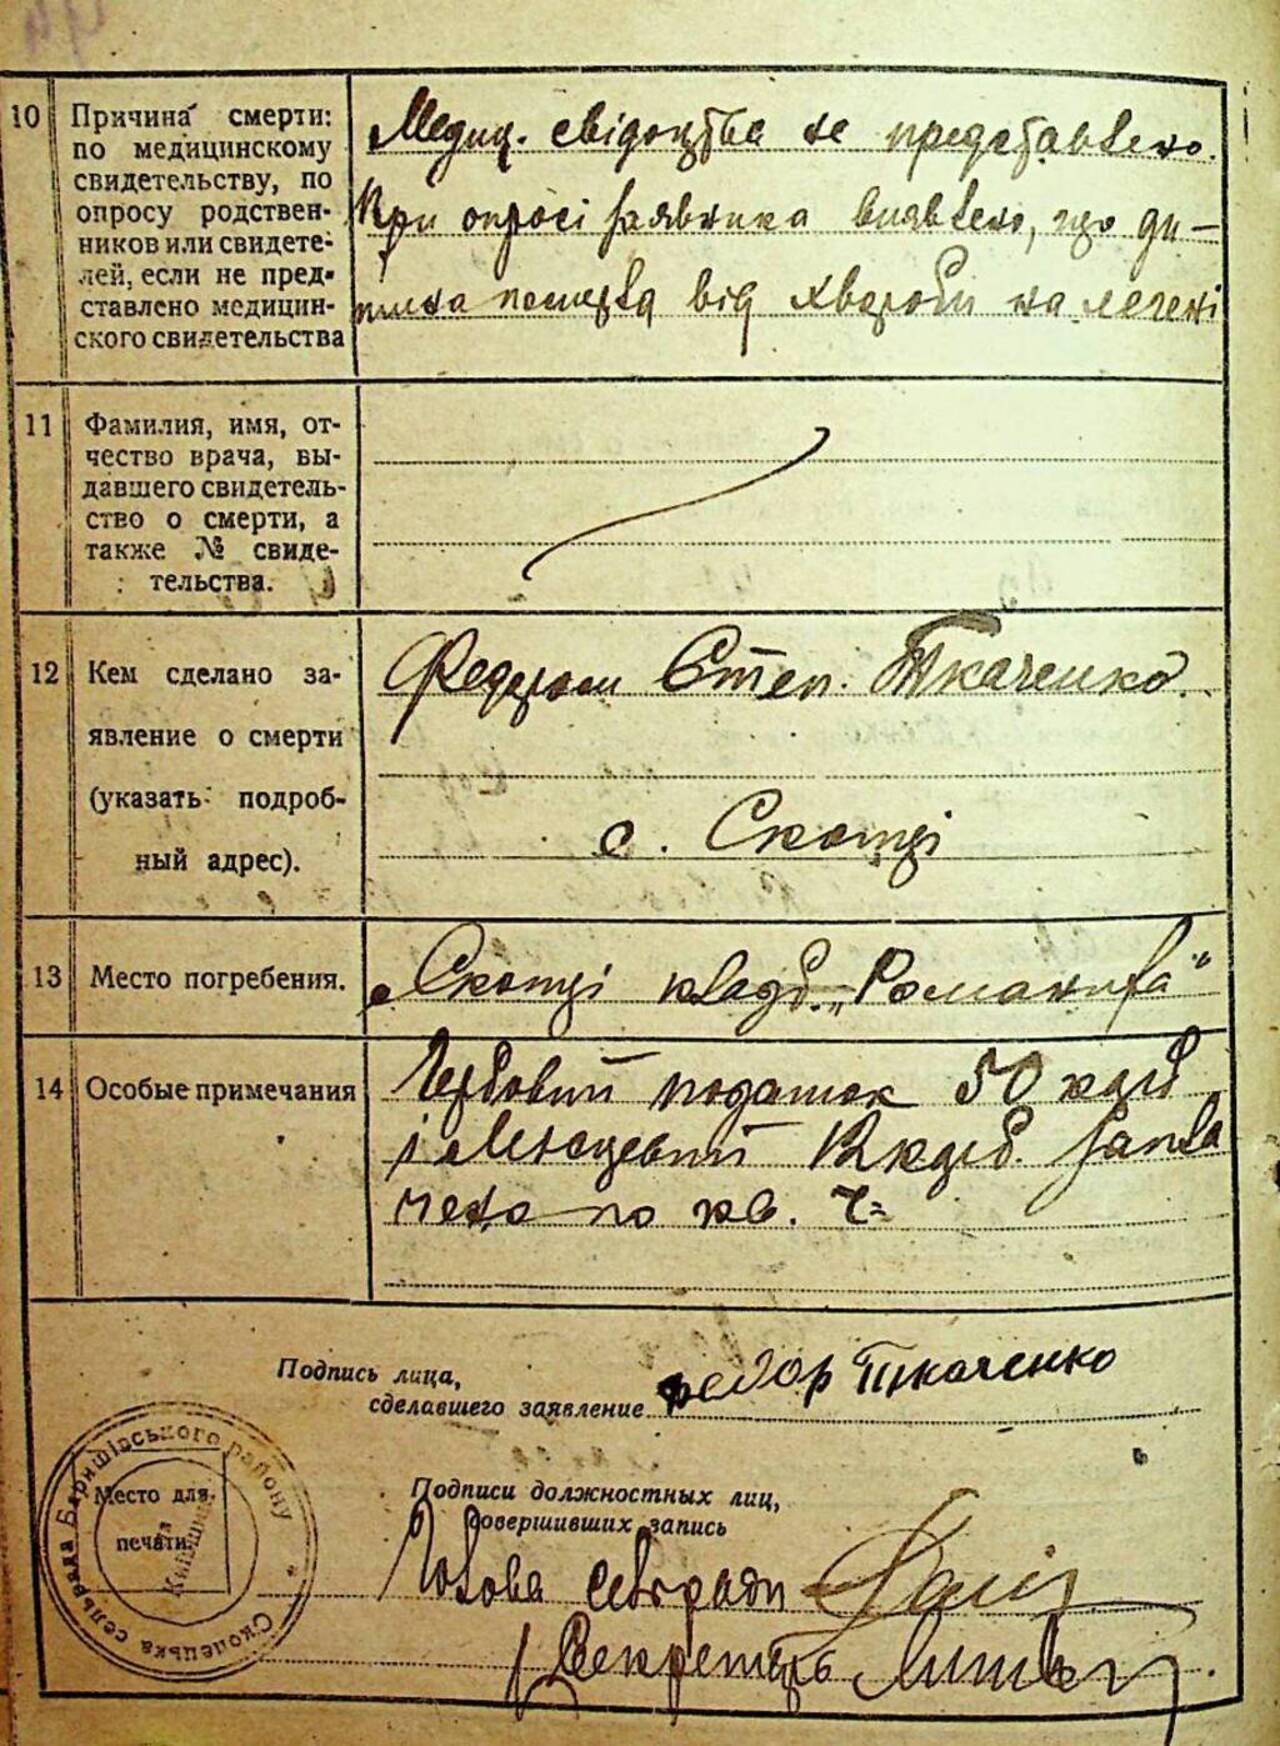 10 Причина смерти:
по медицинскому
свидетельству, по
опросу родствен-
ников или свидете-
лей, если не пред-
ставлено медицин-
ского свидетельства
Медиц. свідоцтва не представлено.
При опросі заявника виявлено, що ди-
тина померла від хвороби на легені
11 Фамилия, имя, от-
чество врача, вы-
давшего свидетель-
ство о смерти, а
также № свиде-
тельства.
12 Кем сделано за-
явление о смерти
(указать подроб-
ный адрес).
Федором Степ. Ткаченко.
с. Скопці
13 Место погребения.
Скопці кладб. „Романиха“
14 Особые примечания
Гербовий податок 50 карб
і Місцевий 12 карб. запла
чено по кв. ч=
Подпись лица,
сделавшего заявление
Федор Ткаченко
Подписи должностных лиц,
совершивших запись
Голова сельради
Секретарь
Место для
печати
Скопецька сельрада Баришівського району